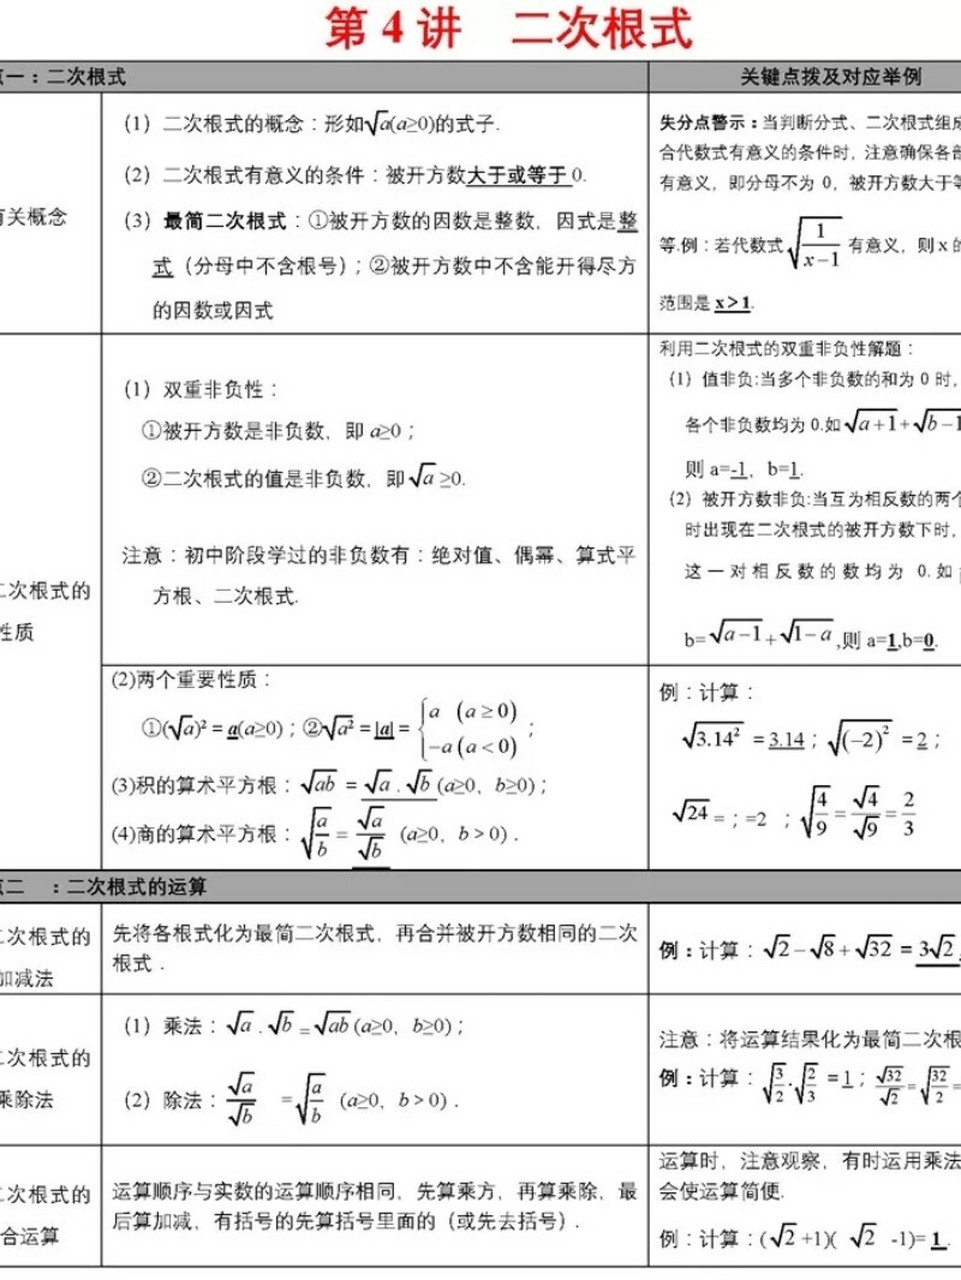 第 4 讲 二次根式
一：二次根式
关键点拨及对应举例
有关概念
(1) 二次根式的概念：形如√a(a≥0)的式子.
(2) 二次根式有意义的条件：被开方数大于或等于 0.
(3) 最简二次根式：①被开方数的因数是整数，因式是整
式（分母中不含根号）；②被开方数中不含能开得尽方
的因数或因式
失分点警示：当判断分式、二次根式组成
合代数式有意义的条件时，注意确保各部
有意义，即分母不为 0，被开方数大于等
等.例：若代数式√(1/(x−1)) 有意义，则 x 的
范围是 x＞1.
二次根式的
性质
(1) 双重非负性：
①被开方数是非负数，即 a≥0；
②二次根式的值是非负数，即√a ≥0.
注意：初中阶段学过的非负数有：绝对值、偶幂、算式平
方根、二次根式.
利用二次根式的双重非负性解题：
(1) 值非负:当多个非负数的和为 0 时，
各个非负数均为 0.如√(a+1)+√(b−1
则 a=-1，b=1.
(2) 被开方数非负:当互为相反数的两个
时出现在二次根式的被开方数下时，
这一对相反数的数均为 0.如
b=√(a−1)+√(1−a),则 a=1,b=0.
(2)两个重要性质：
①(√a)²=a(a≥0)；②√a²=|a|={a (a≥0) −a(a<0)；
(3)积的算术平方根：√ab=√a·√b(a≥0，b≥0)；
(4)商的算术平方根：√(a/b)=√a/√b (a≥0，b＞0).
例：计算：
√3.14² =3.14；√(−2)² =2；
√24=；=2 ；√(4/9)=√4/√9=2/3
二 ：二次根式的运算
二次根式的
加减法
先将各根式化为最简二次根式，再合并被开方数相同的二次
根式.
例：计算：√2−√8+√32=3√2.
二次根式的
乘除法
(1) 乘法：√a·√b=√ab(a≥0，b≥0)；
(2) 除法：√a/√b =√(a/b) (a≥0，b＞0).
注意：将运算结果化为最简二次根
例：计算：√(3/2)·√(2/3)=1；√32/√2=√(32/2)=
二次根式的
合运算
运算顺序与实数的运算顺序相同，先算乘方，再算乘除，最
后算加减，有括号的先算括号里面的（或先去括号）.
运算时，注意观察，有时运用乘法
会使运算简便.
例：计算：(√2+1)( √2 -1)= 1 .